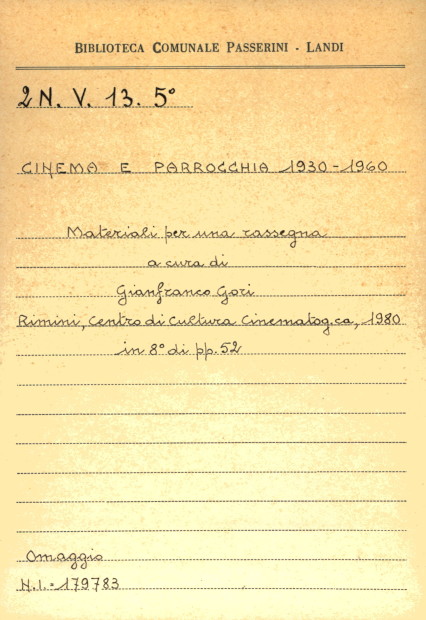 BIBLIOTECA COMUNALE PASSERINI - LANDI
2N. V. 13. 5°
CINEMA E PARROCCHIA 1930-1960
Materiali per una rassegna
a cura di
Gianfranco Gori
Rimini, Centro di Cultura Cinematog.ca, 1980
in 8° di pp. 52
Omaggio
N.I.=179783